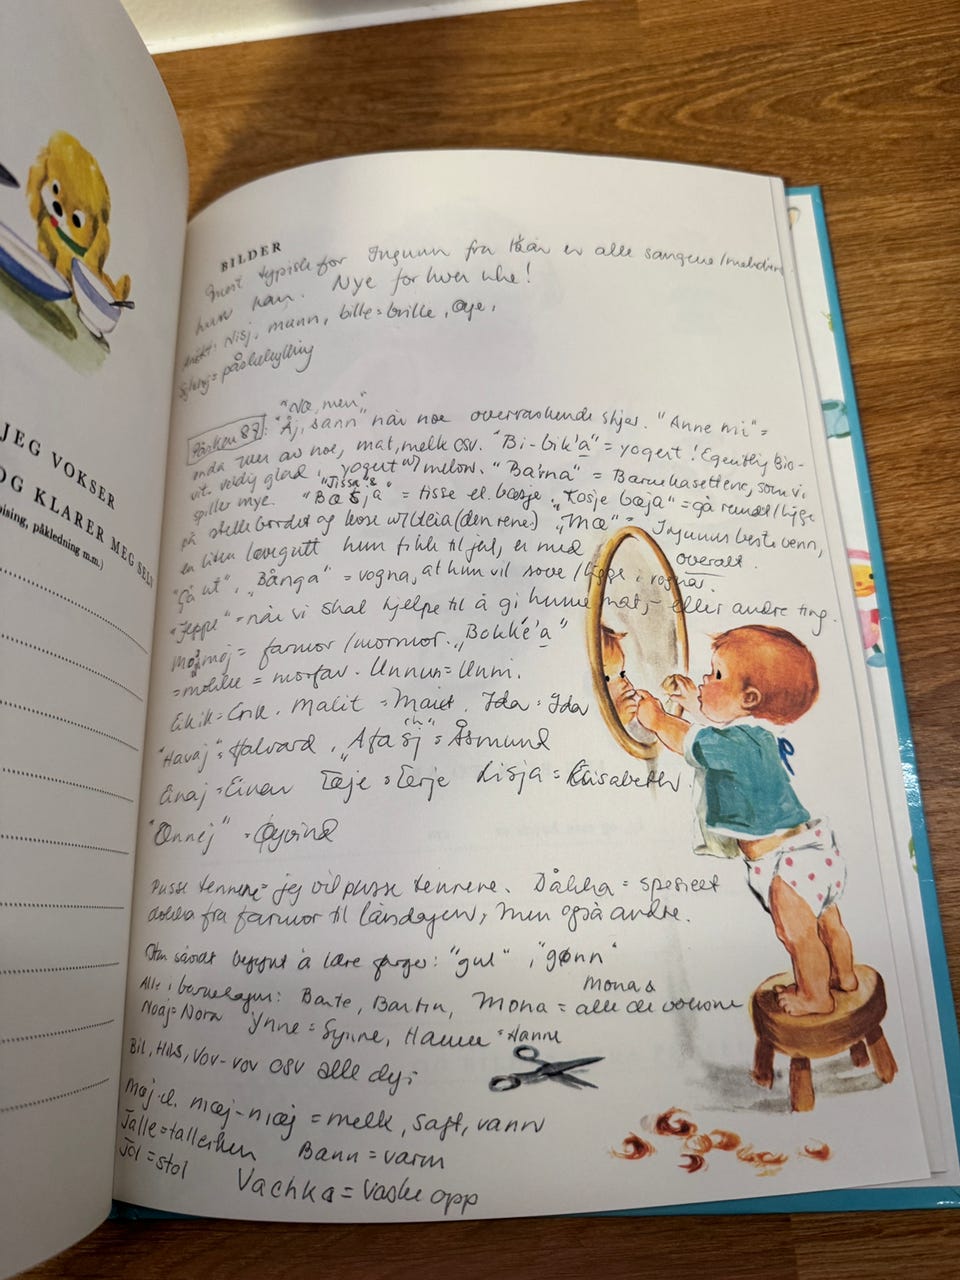 JEG VOKSER
OG KLARER MEG SELV
påkledning m.m.)
BILDER
Mest typisk for Ingunn fra er alle sangene/melodiene
hun kan. Nye for hver uke!
Nisj, munn, bille=brille, Øye,
= påskekylling
"Næ, men"
Påsken 89: "Åj, sann" når noe overraskende skjer. "Anne mi" =
enda mer av noe, mat, melk osv. "Bi-bik'a" = yogurt! Egentlig Bio-
vit. veldig glad i yogurt m/melon. "Ba'rna" = Barnekassettene, som vi
spiller mye. "Tissa" & "Bæsja" = tisse el. bæsje. "Kosje bæja" = gå rundt/ligge
på stellebordet og kose m/bleia (den rene). "Mæ" = Ingunns beste venn,
en liten løvegutt hun fikk til jul, er med overalt.
"Gå ut", "Bånga" = vogna, at hun vil sove/ligge i vogna.
"Jeppe" = når vi skal hjelpe til å gi henne mat, - eller andre ting.
Mojmoj = farmor/mormor. "Bokké'a"
= mokke = morfar. Unnun = Unni.
Eikik = Eirik. Malit = Marit. Ida = Ida
"Havaj" = Halvard. "Afasj" = Åsmund
"h"
Einaj = Einar Tæje = Terje Lisja = Elisabeth.
"Onnej" = Øyvind
Pusse tennene = jeg vil pusse tennene. Dåkka = spesielt
dokka fra farmor til dåpdagen, men også andre.
Har såvidt begynt å lære farger: "gul", "gønn"
Alle i barnehagen: Bente, Bentin, Mona = alle de voksne
Mona &
Noaj = Nora Ynne = Synne, Hanne = Hanne
Bil, Hus, Vov-vov osv alle dyr
mæj-el. mæj-mæj = melk, saft, vann
Talle = tallerken Bann = varm
Tol = stol
Vachka = Vaske opp